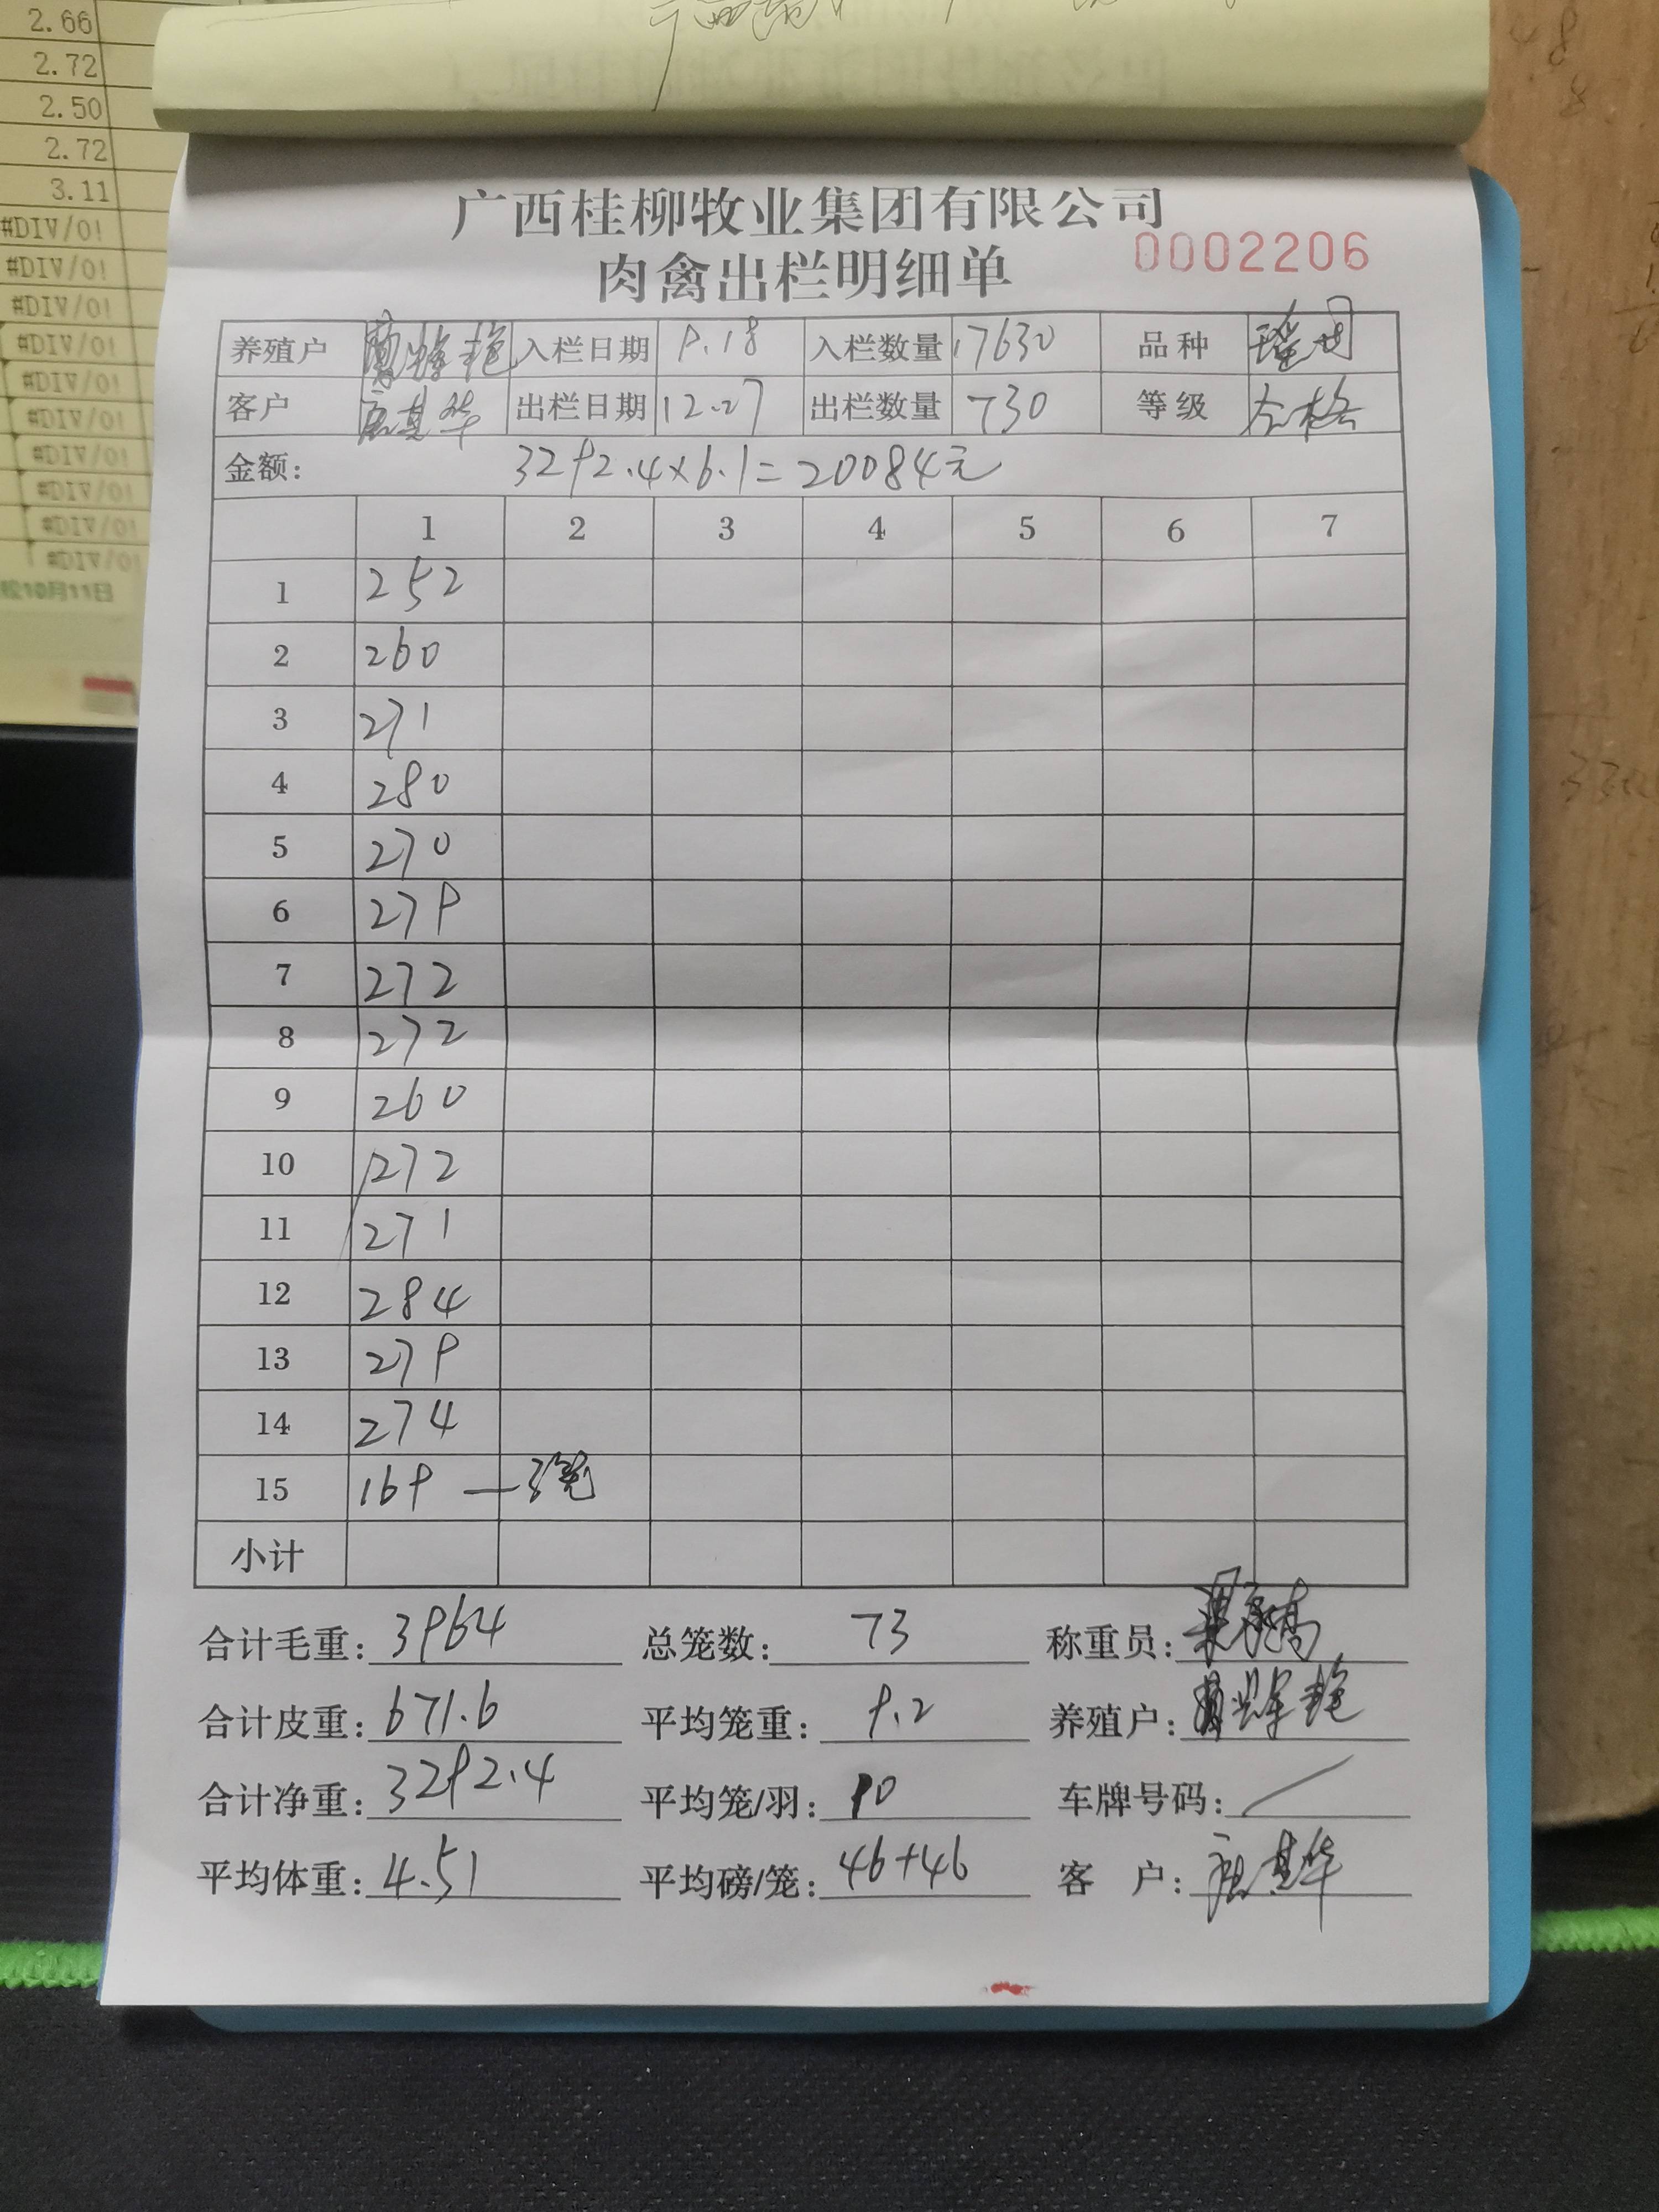 2.66
2.72
2.50
2.72
3.11
#DIV/0!
#DIV/0!
#DIV/0!
#DIV/0!
#DIV/0!
#DIV/0!
#DIV/0!
#DIV/0!
#DIV/0!
#DIV/0!
10月11日
广西桂柳牧业集团有限公司
肉禽出栏明细单 0002206
养殖户 入栏日期 9.18 入栏数量 17630 品种
客户 其华 出栏日期 12.27 出栏数量 730 等级 合格
金额: 3292.4×6.1=20084元
1 2 3 4 5 6 7
1 252
2 260
3 271
4 280
5 270
6 279
7 272
8 272
9 260
10 272
11 271
12 284
13 279
14 274
15 169 — 3笼
小计
合计毛重: 3964 总笼数: 73 称重员:
合计皮重: 671.6 平均笼重: 9.2 养殖户:
合计净重: 3292.4 平均笼/羽: 10 车牌号码: /
平均体重: 4.51 平均磅/笼: 46+46 客 户: 其华